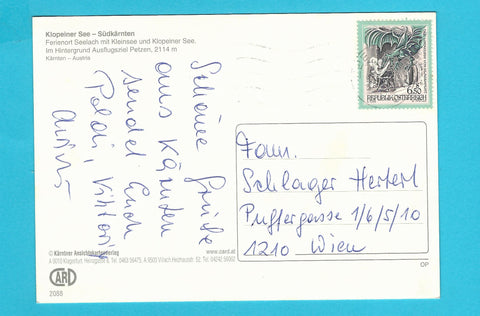 Klopeiner See – Südkärnten
Ferienort Seelach mit Kleinsee und Klopeiner See.
Im Hintergrund Ausflugsziel Petzen, 2114 m
Kärnten – Austria
Schöne Grüße
aus Kärnten
sendet Euch
Poldi, Viktoria
S 6.50
REPUBLIK ÖSTERREICH
Fam.
Schlager Herbert
Puffergasse 1/6/5/10
1210 Wien
© Kärntner Ansichtskartenverlag
www.card.at
CARD
2088
OP